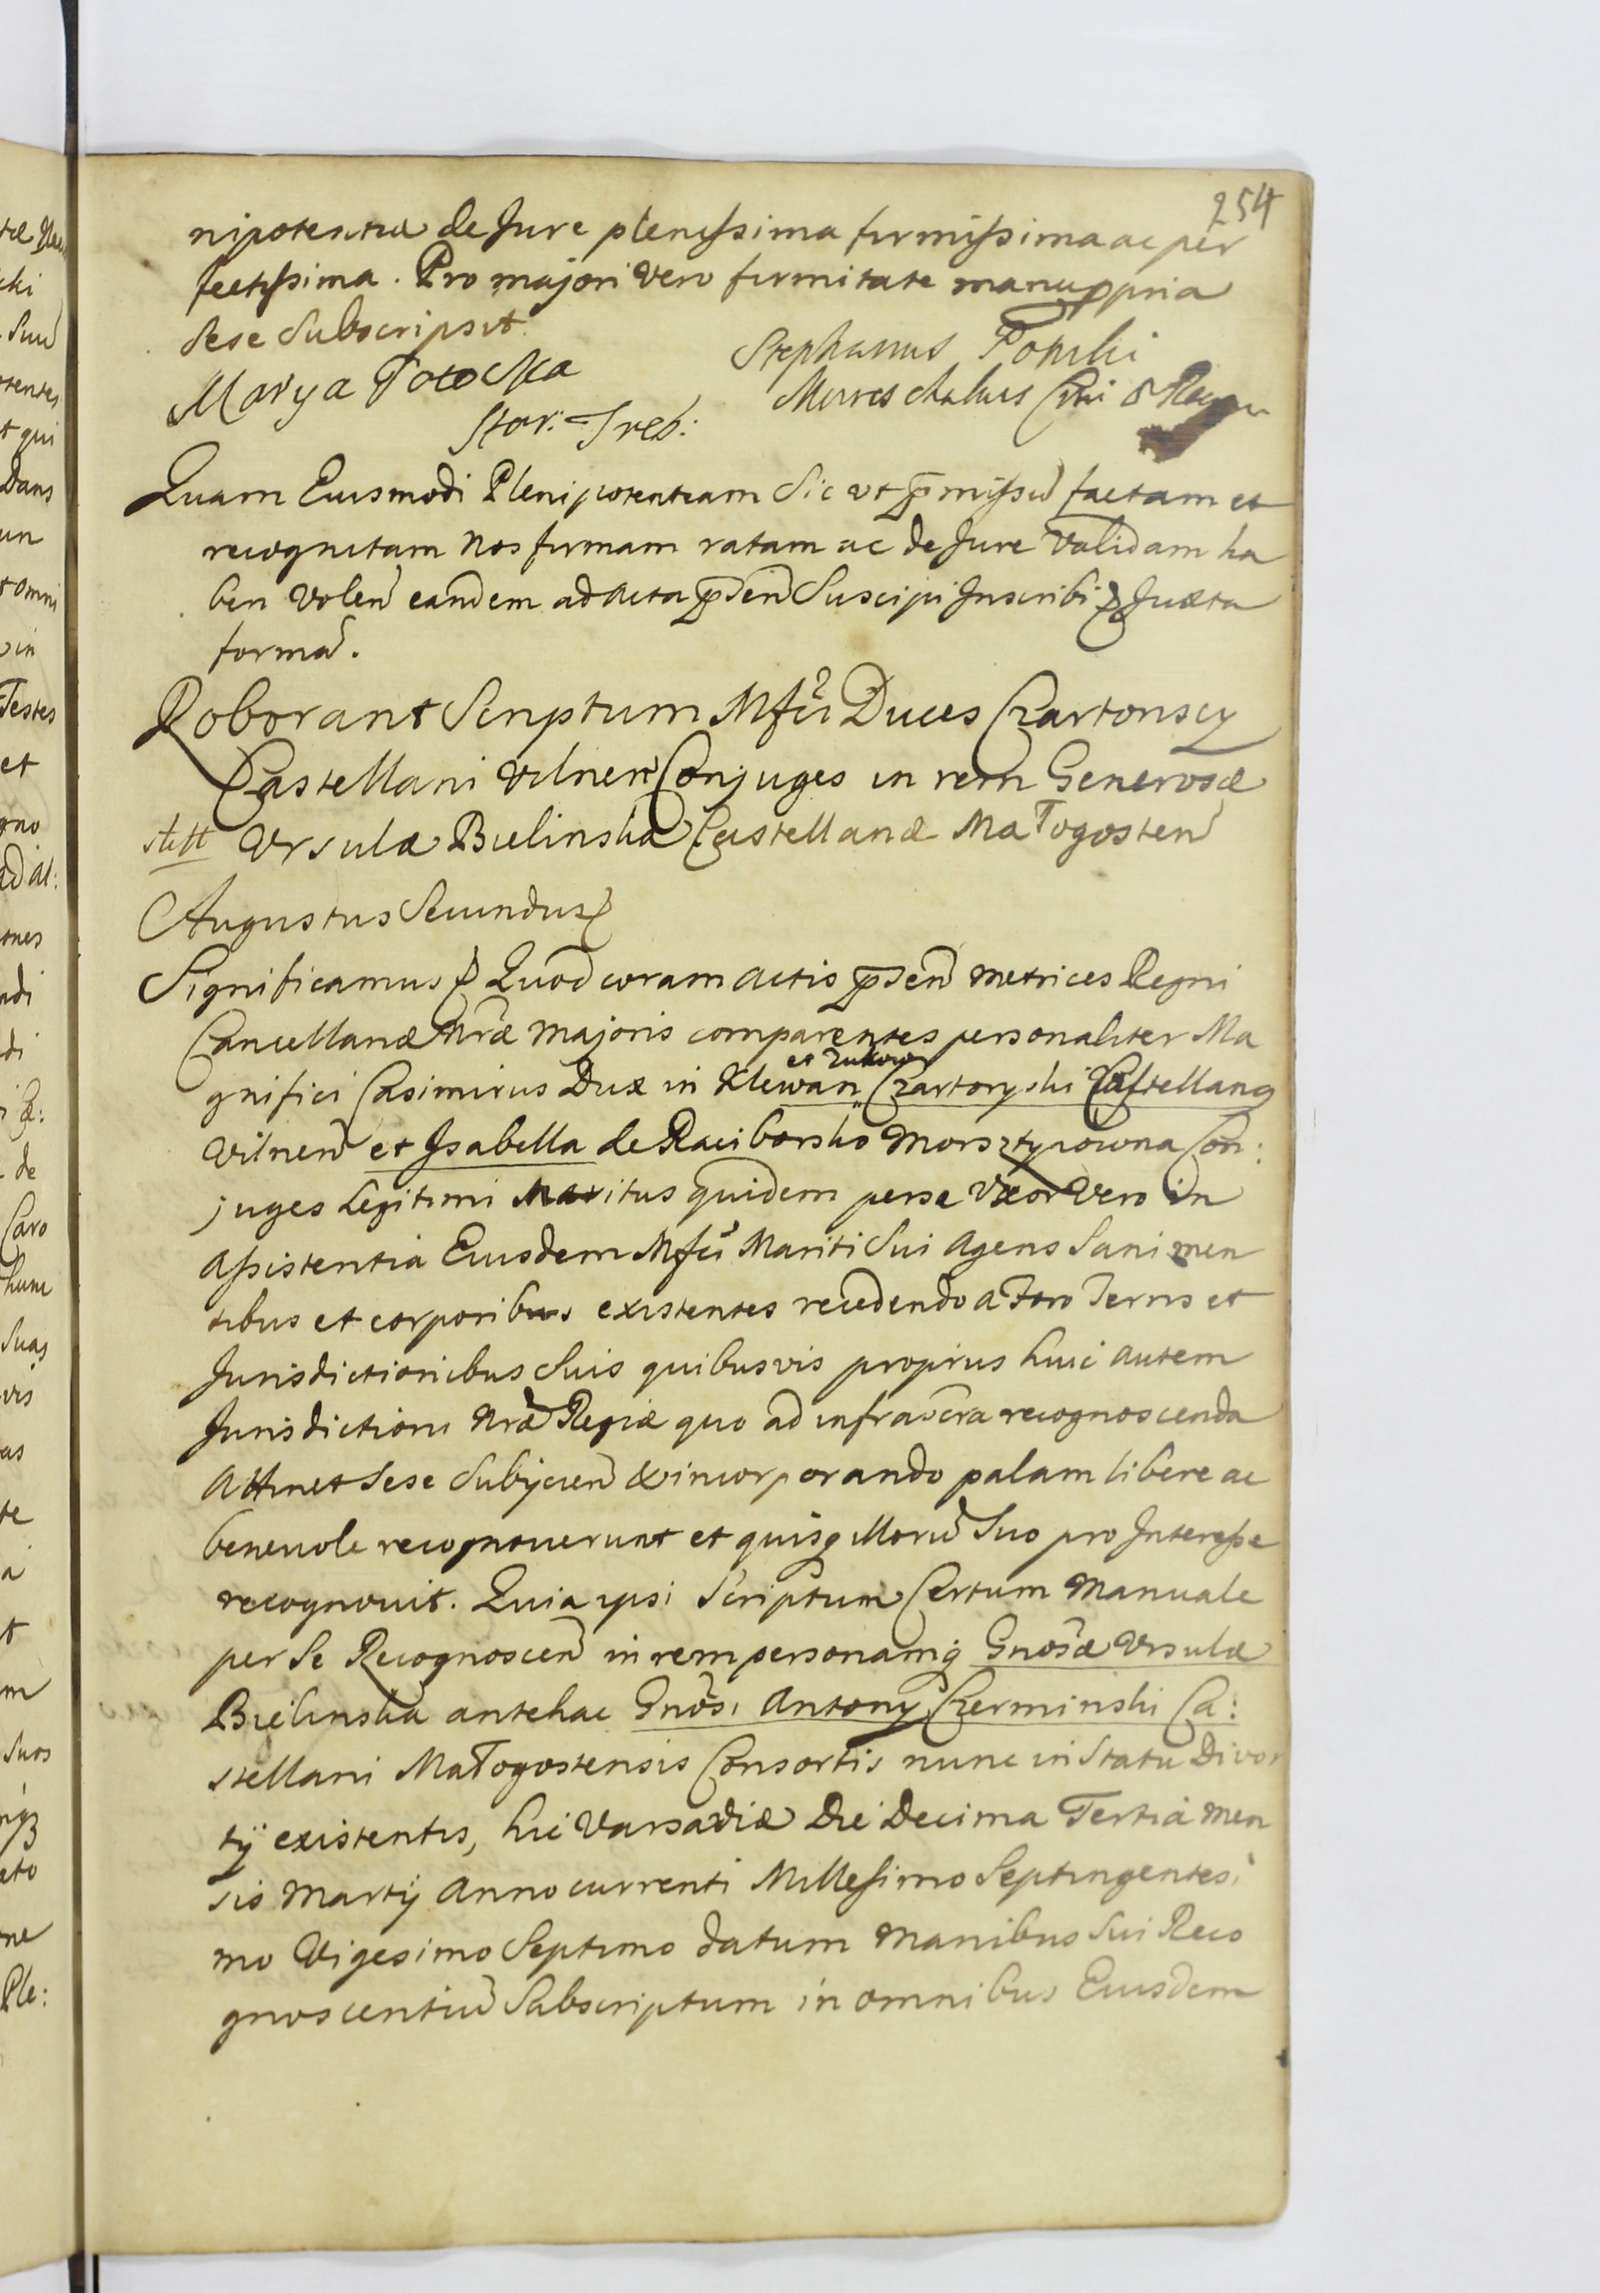 254
nipotentia de Jure plenissima firmissima ac per
fectissima. Pro majori vero firmitate manu ppria
sese subscripsit.
Stephanus Potocki
Marya Potocka
Stor: Treb:
Quam Eiusmodi Plenipotentiam sic ut pmissũ factam et
recognitam nos firmam ratam ac de Jure validam ha
beri voleñ eandem ad acta pñseñ suscipi Inscribi p Juxta
formã.
Roborant Scriptum Mfci Duces Czartoriscy
Castellani Vilneñ Conjuges in rem Generosæ
Ursulæ Bielinska Castellanæ Małogosteñ
Augustus Secundus
Significamus p Quod coram actis pñseñ metrices Regni
Cancellariæ Nrãe majoris comparentes personaliter Ma
et Zukow
gnifici Casimirus Dux in Klewan Czartoryski Castellanq
Vilneñ et Isabella de Raciborsko Morsztynowna Con:
juges Legitimi Maritus quidem per se Uxor vero in
assistentia Eiusdem Mfci Mariti sui agens sani men
tibus et corporibus existentes recedendo a Foro Terris et
Jurisdictionibus suis quibusvis proprius huic autem
Jurisdictioni Nrãe Regiæ quo ad infrascra recognoscenda
attinet sese subijcieñ & incorporando palam libere ac
benevole recognoverunt et quisq illorũ suo pro Interesse
recognovit. Quia ipsi Scriptum Certum Manuale
per se Recognosceñ in rem personamq Gnosæ Ursulæ
Bielinska antehac Gnosi Antony Czerminski Ca:
stellani Małogostensis Consortis nunc in statu Divor
tij existentis, hic Varsaviæ Die Decima Tertia men
sis Martij Anno currenti Millesimo Septingentesi
mo Vigesimo Septimo datum manibus sui Reco
gnoscentiũ Subscriptum in omnibus Eiusdem